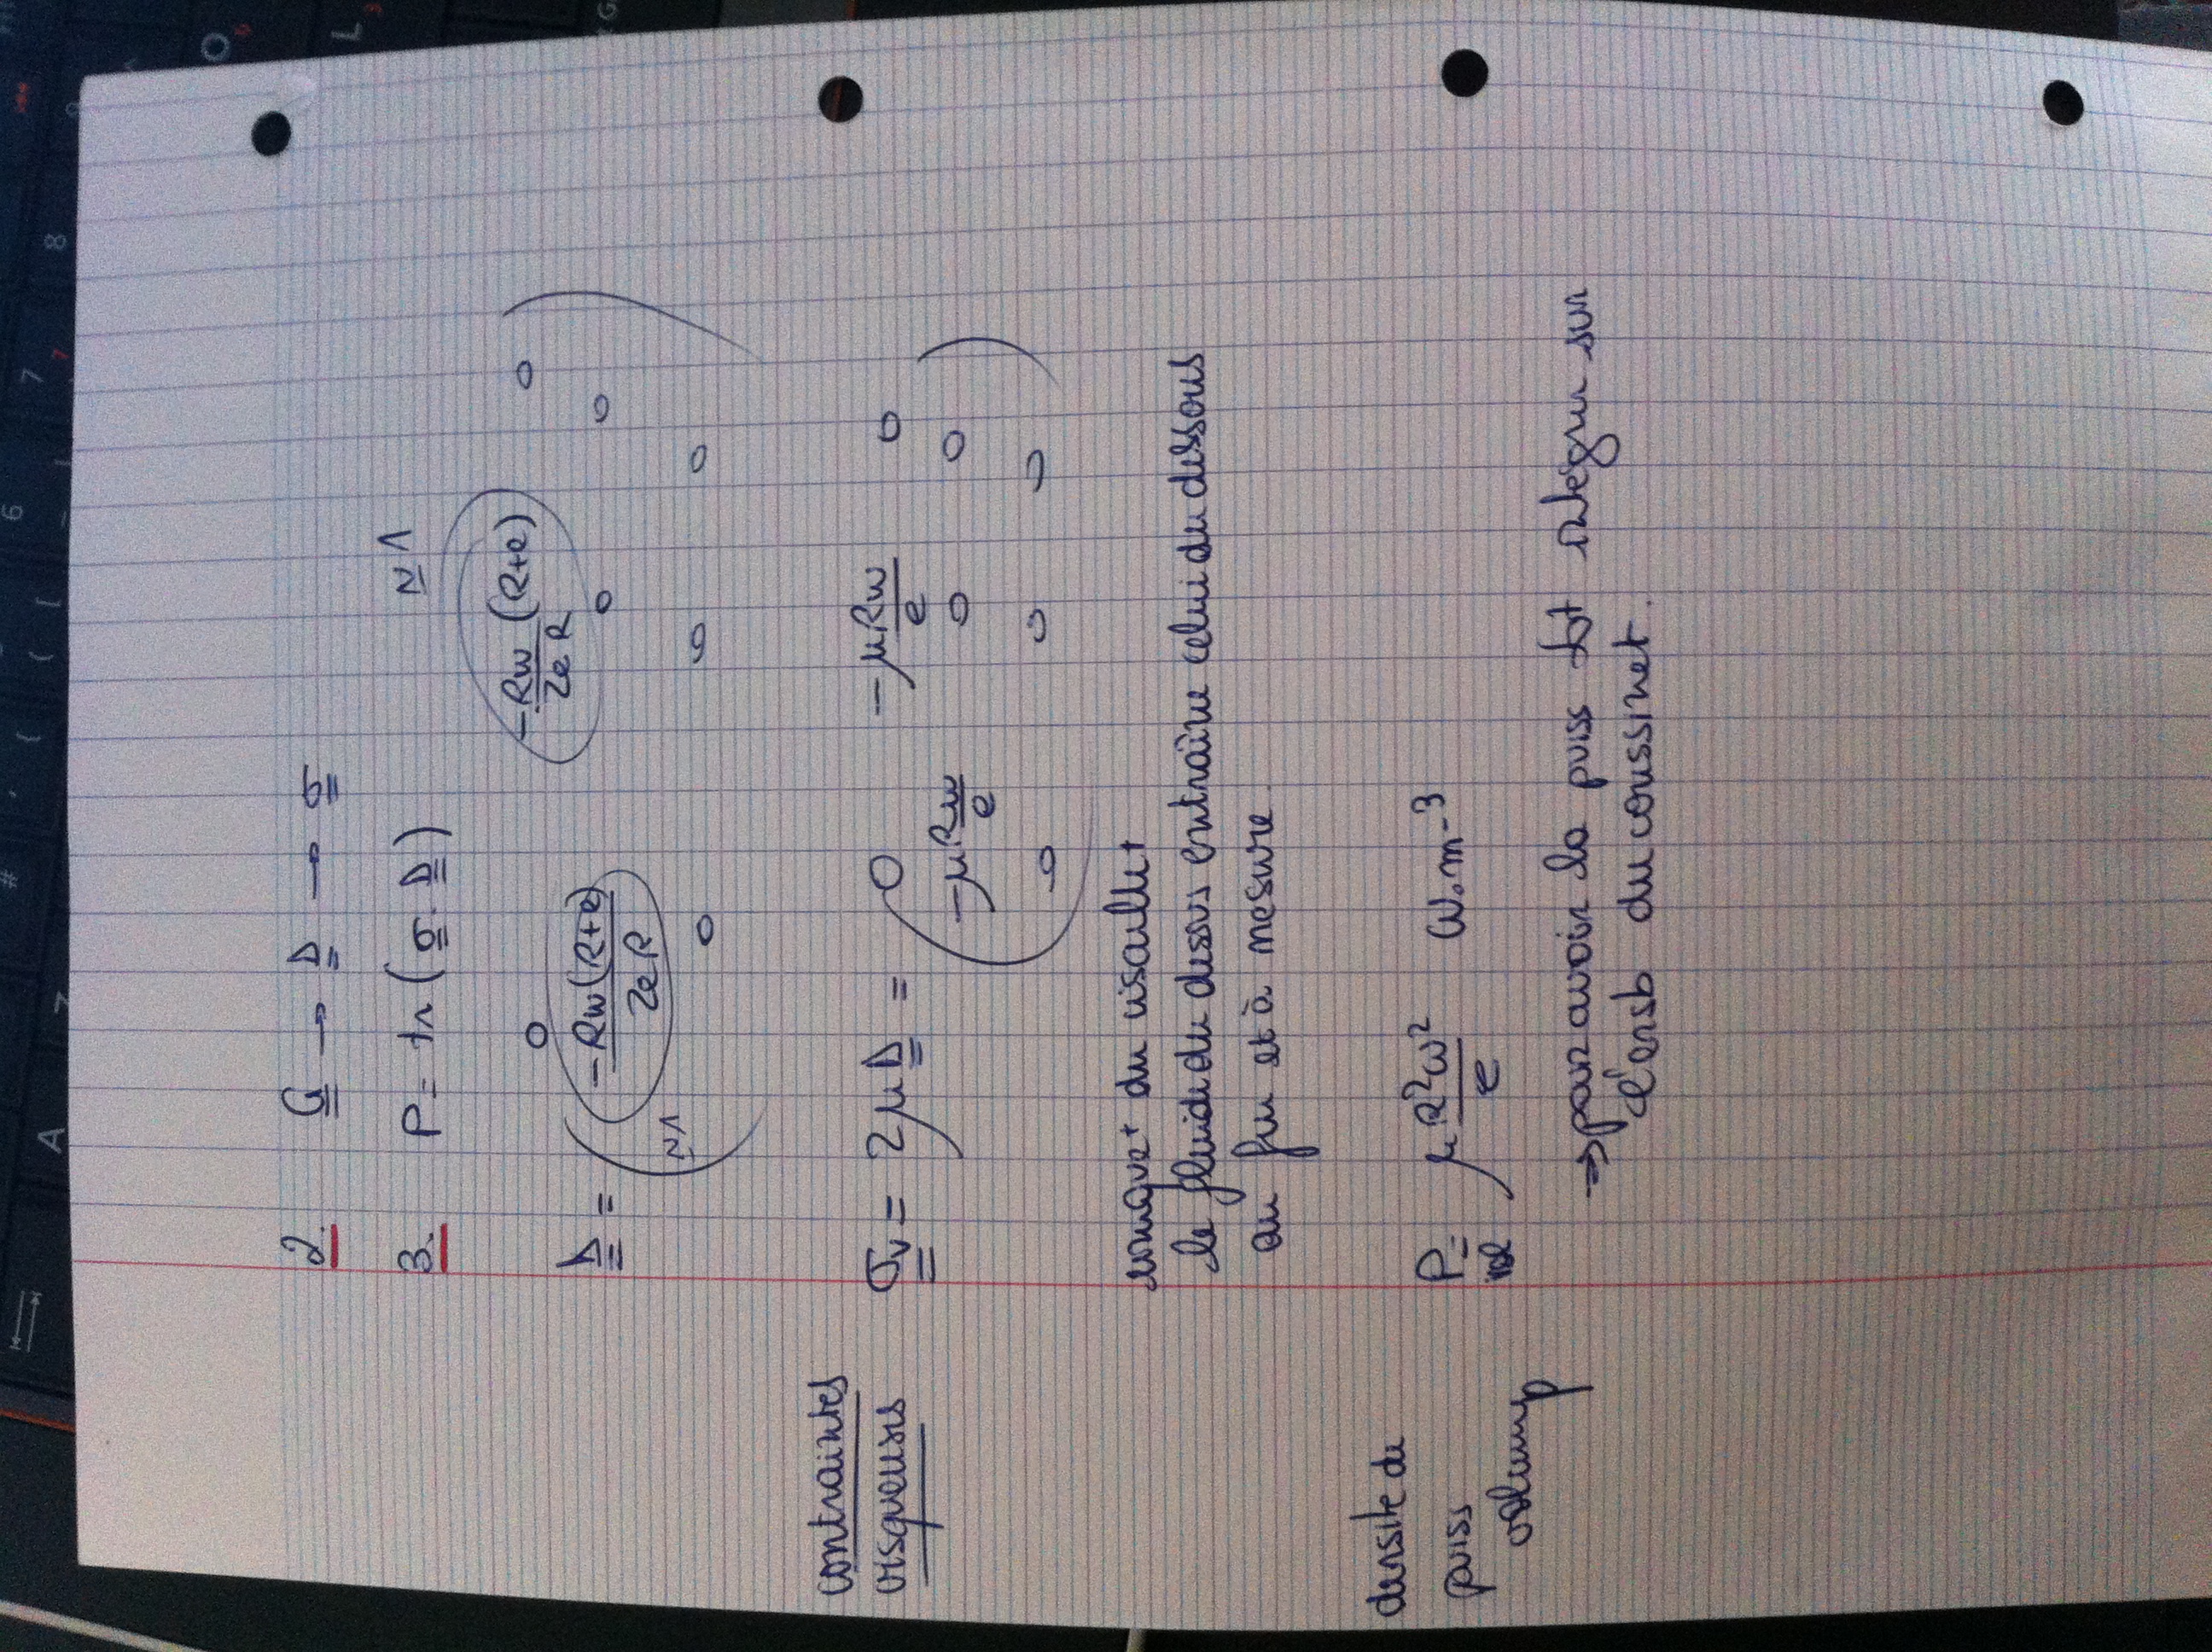 2. G → D → σ
3. P = tr(σ.D)
≈1
D = ( 0 -Rω/2eR (R+e) 0
-Rω(R+e)/2eR 0 0
≈1
0 0 0 )
contraintes
visqueuses
σv = 2μD = ( 0 -μRω/e 0
-μRω/e 0 0
0 0 0 )
uniquet du cisaillet
le fluide du dessus entraîne celui du dessous
au fur et à mesure
densité de
puiss
volumq
P = μ R²ω²/e W.m-3
vol
⇒ pour avoir la puiss tot intégrer sur
l'ensb du coussinet.